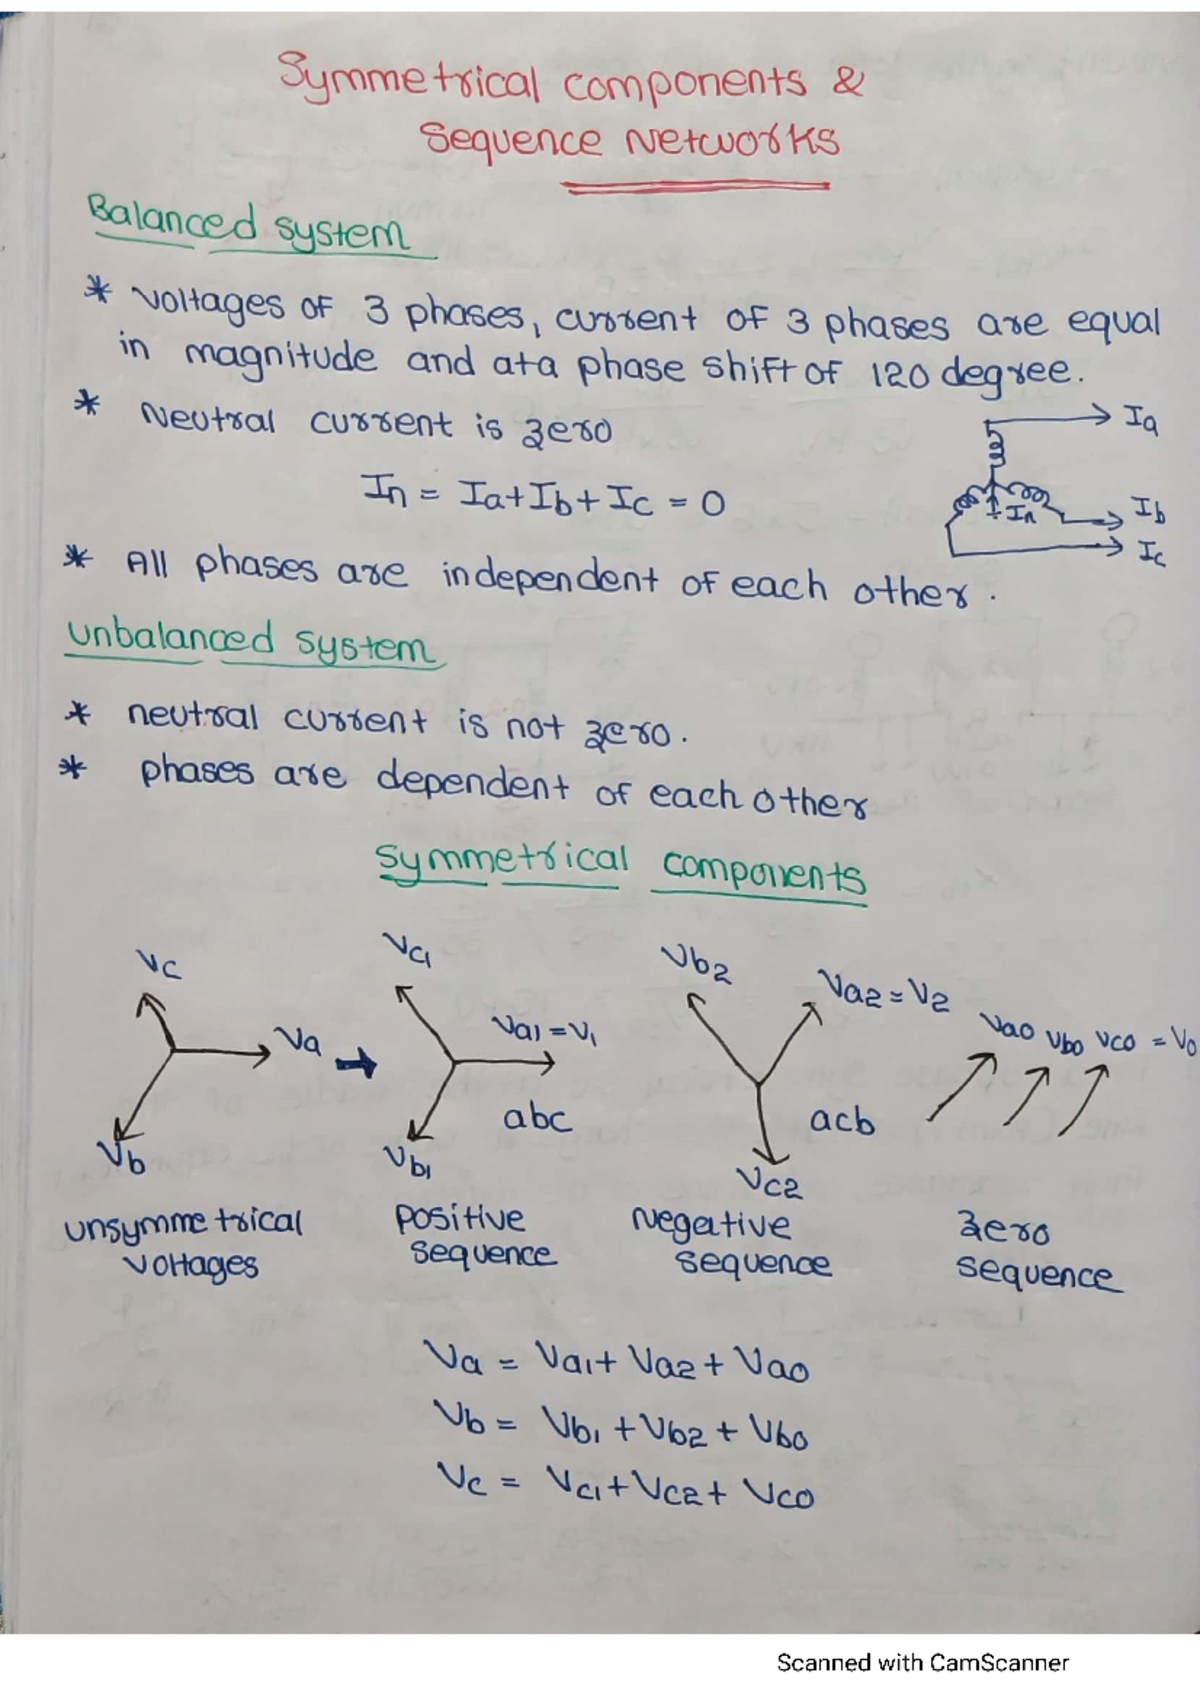 Symmetrical components &
Sequence Networks
Balanced system
* Voltages of 3 phases, current of 3 phases are equal
in magnitude and at a phase shift of 120 degree.
* Neutral current is zero
In = Ia+Ib+Ic = 0
Ia
In
Ib
Ic
* All phases are independent of each other.
Unbalanced system
* neutral current is not zero.
* phases are dependent of each other
Symmetrical components
Vc
Va
Vb
Vc1
Va1=V1
abc
Vb1
Vb2
Va2=V2
acb
Vc2
Va0 Vb0 Vc0 = V0
unsymmetrical
voltages
positive
sequence
Negative
sequence
zero
sequence
Va = Va1+ Va2+ Va0
Vb = Vb1 +Vb2+ Vb0
Vc = Vc1+Vc2+ Vc0
Scanned with CamScanner